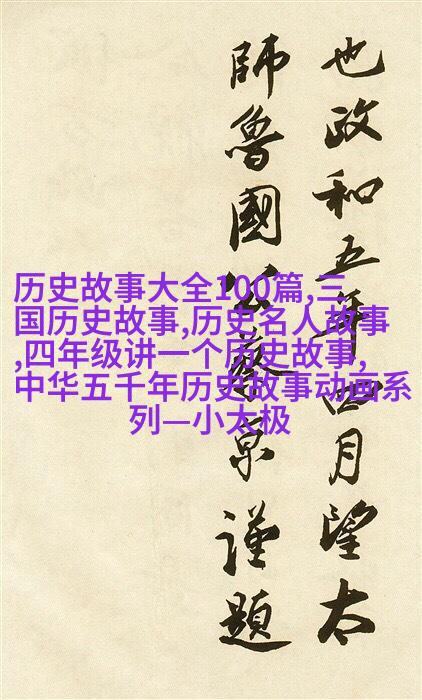 也政和五年四月望太
師魯國公蔡京謹題
历史故事大全100篇,三
国历史故事,历史名人故事
,四年级讲一个历史故事,
中华五千年历史故事动画系
列—小太极